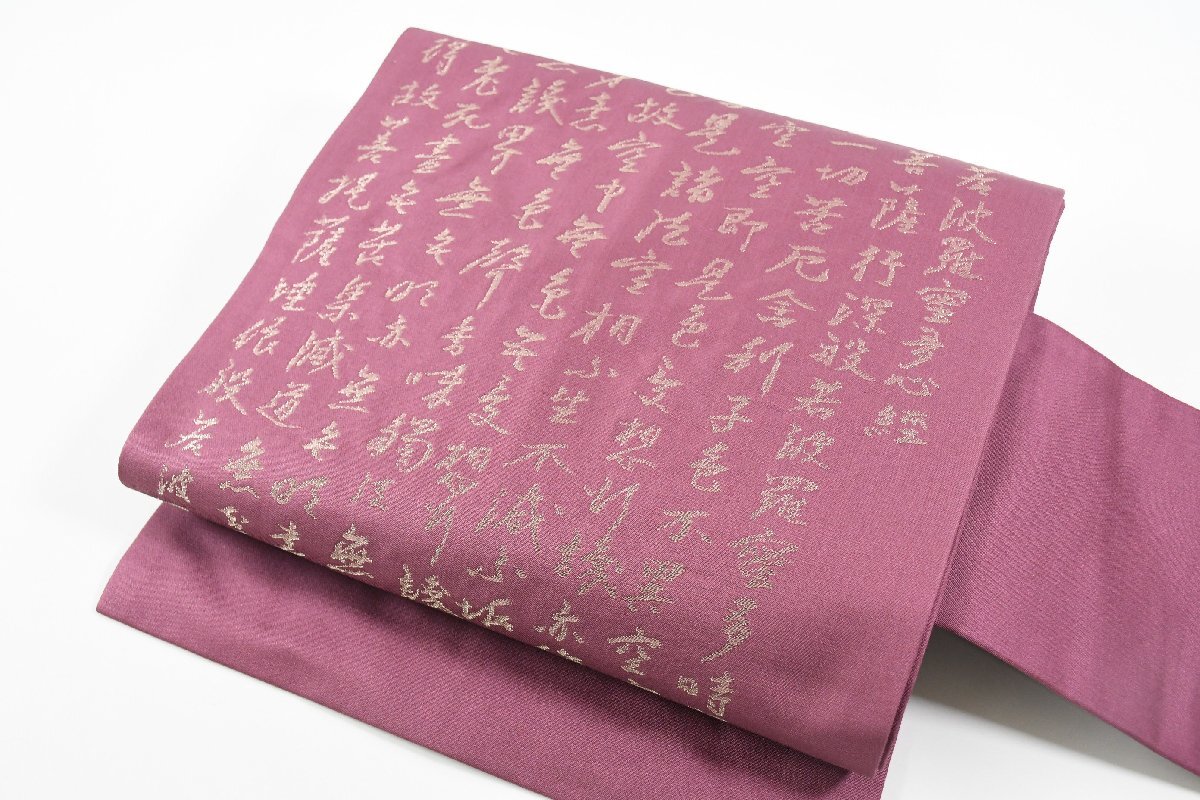 若波羅蜜多心經
菩薩行深般若波羅蜜多時
一切苦厄舍利子色不異空
空空即是色受想行識亦
是諸法空相不生不滅不垢
故空中無色無受想行識
身意無色聲香味觸法無
識界無无明亦無无明盡
老死盡无苦集滅道無
得故菩提薩埵依般若波